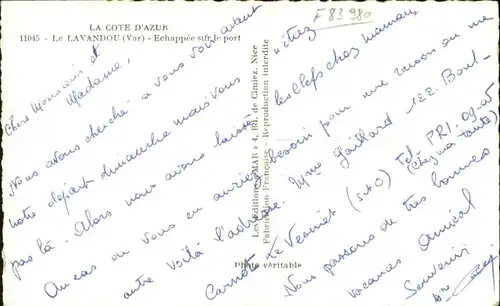 LA COTE D'AZUR
11045 - Le LAVANDOU (Var) - Echappée sur le port
F 83 980
Chers Monsieur et
Madame,
Nous avons cherché à vous voir avant
notre départ dimanche mais vous étiez
pas là. Alors nous avons laissé les clefs chez maman,
Au cas où vous en auriez besoin pour une raison ou une
autre voilà l'adresse. Mme Gaillard 122 Boul.
Carnot Le Vesinet (S&O) Tel. PRI. 09-05
(chez ma tante)
Nous passons de très bonnes
vacances
Amical
Souvenir
Les Editions "MAR", Bd. de Cimiez, Nice
Fabrication Française - Reproduction interdite
Photo véritable